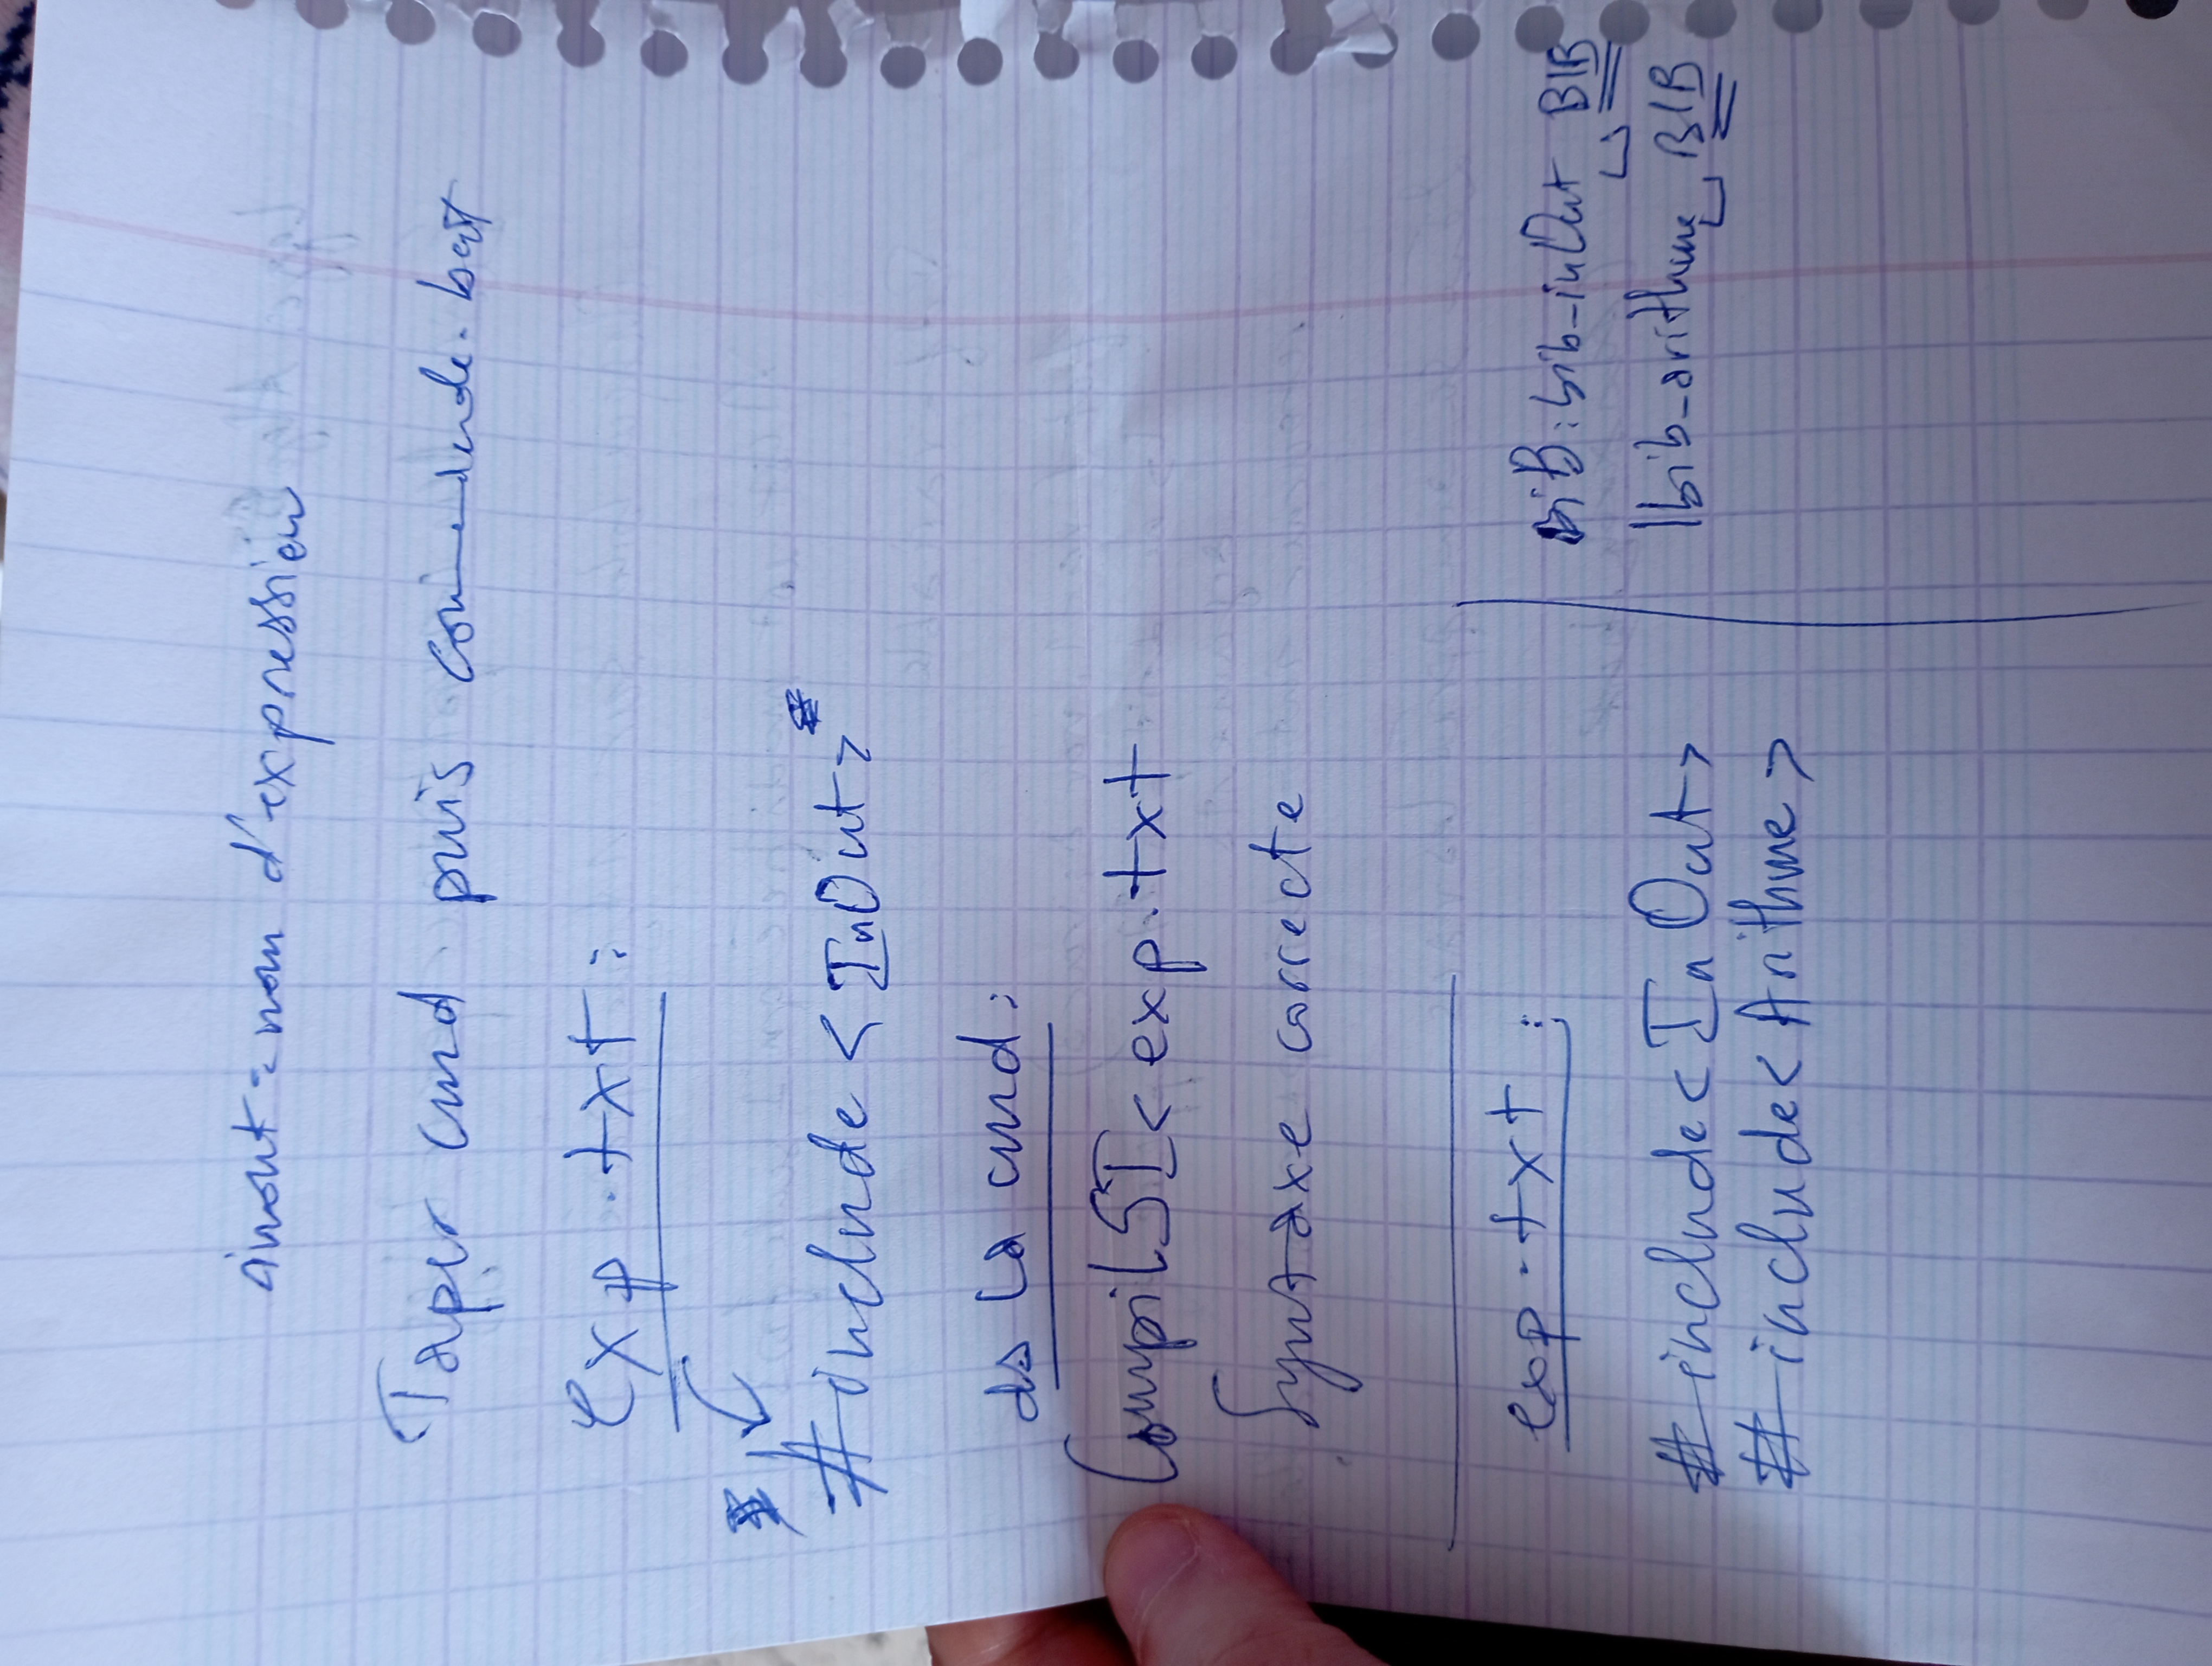 inout = nom d'expression
Taper cmd puis commande.bat
exp.txt :
#include <InOut>
ds la cmd :
CompilSI < exp.txt
Syntaxe correcte
exp.txt :
# include < InOut >
# include < Arithme >
BIB : bib_inOut ␣ BIB
| bib_arithme ␣ BIB